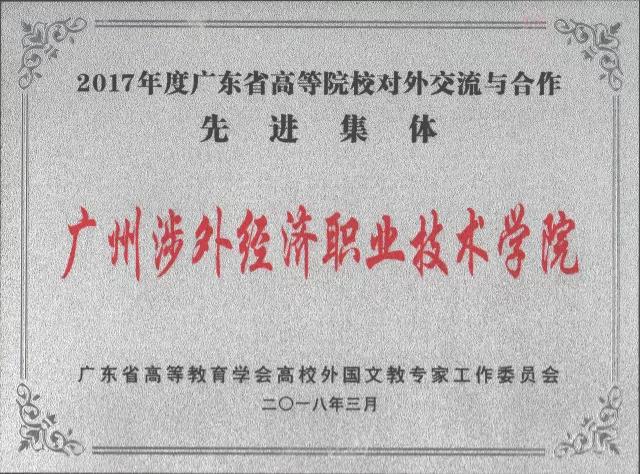 2017年度广东省高等院校对外交流与合作
先进集体
广州涉外经济职业技术学院
广东省高等教育学会高校外国文教专家工作委员会
二〇一八年三月